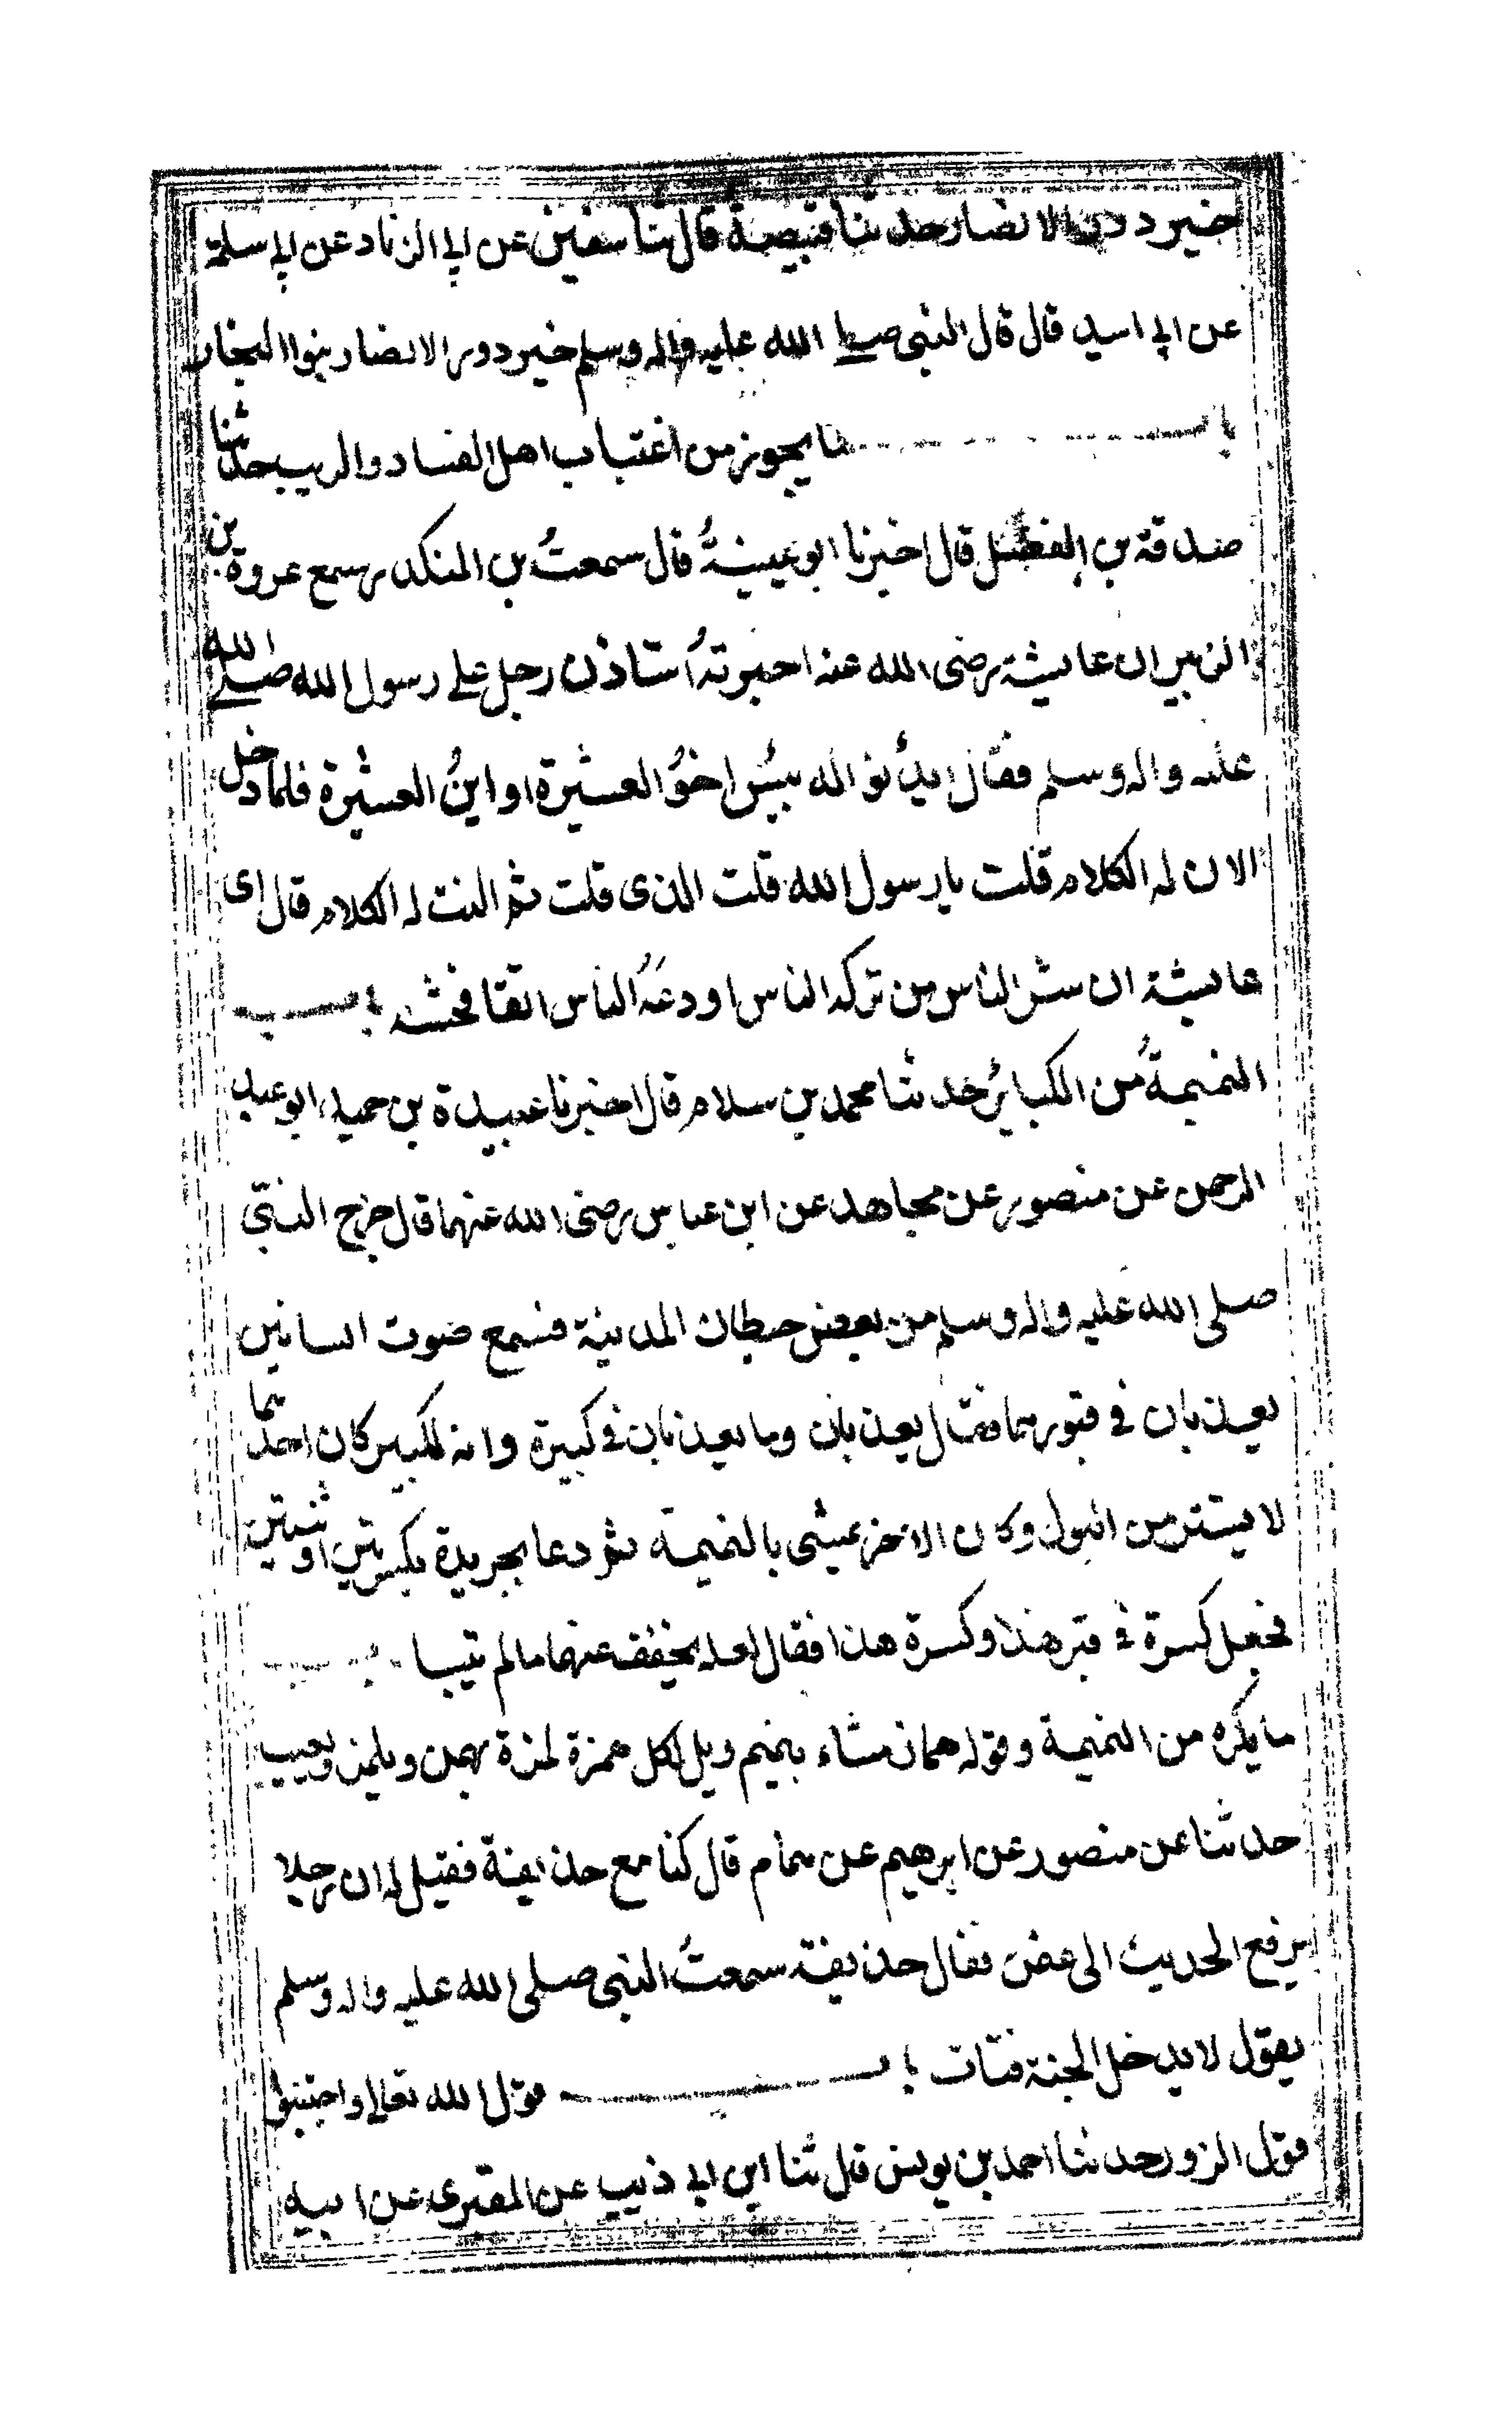 خير دور الانصار حدثنا قبيصة قال ثنا سفين عن ابي الزناد عن ابي سلمة
عن ابي اسيد قال قال النبي صلى الله عليه واله وسلم خير دور الانصار بنوا النجار
باب ما يجوز من اغتياب اهل الفساد والريب حدثنا
صدقة بن الفضل قال اخبرنا ابو عيينة قال سمعت بن المنكدر سمع عروة بن
الزبير ان عايشة رضى الله عنه اخبرته استاذن رجل على رسول الله صلى الله
عليه واله وسلم فقال ايذنوا له بيس اخو العشيرة او ابن العشيرة فلما دخل
الان له الكلام قلت يا رسول الله قلت الذى قلت ثم النت له الكلام قال اى
عايشة ان شر الناس من تركه الناس او ودعه الناس اتقا فحشه باب
النميمة من الكباير حدثنا محمد بن سلام قال اخبرنا عبيدة بن حميد ابو عبد
الرحمن عن منصور عن مجاهد عن ابن عباس رضى الله عنهما قال خرج النبي
صلى الله عليه واله وسلم من بعض حيطان المدينة فسمع صوت انسانين
يعذبان في قبورهما فقال يعذبان وما يعذبان في كبيرة وانه لكبير كان احدهما
لا يستتر من البول وكان الاخر يمشى بالنميمة ثم دعا بجريدة بكسرتين او ثنتين
فجعل كسرة في قبر هذا وكسرة هذا فقال لعله يخفف عنهما ما لم تيبسا باب
ما يكره من النميمة وقوله هماز مشاء بنميم ويل لكل همزة لمزة يهمز ويلمز ويعيب
حدثنا عن منصور عن ابرهيم عن همام قال كنا مع حذيفة فقيل له ان رجلا
يرفع الحديث الى عثمن فقال حذيفة سمعت النبي صلى الله عليه واله وسلم
يقول لا يدخل الجنة قتات باب قول الله تعالى واجتنبوا
قول الزور حدثنا احمد بن يونس قال ثنا ابن ابي ذيب عن المقبرى عن ابيه